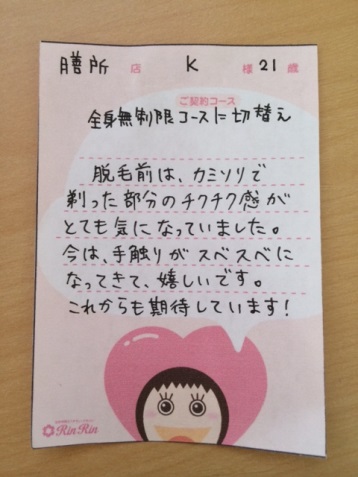 膳所 店 K 様 21 歳
ご契約コース
全身無制限コースに切替え
脱毛前は、カミソリで
剃った部分のチクチク感が
とても気になっていました。
今は、手触りがスベスベに
なってきて、嬉しいです。
これからも期待しています!
RinRin